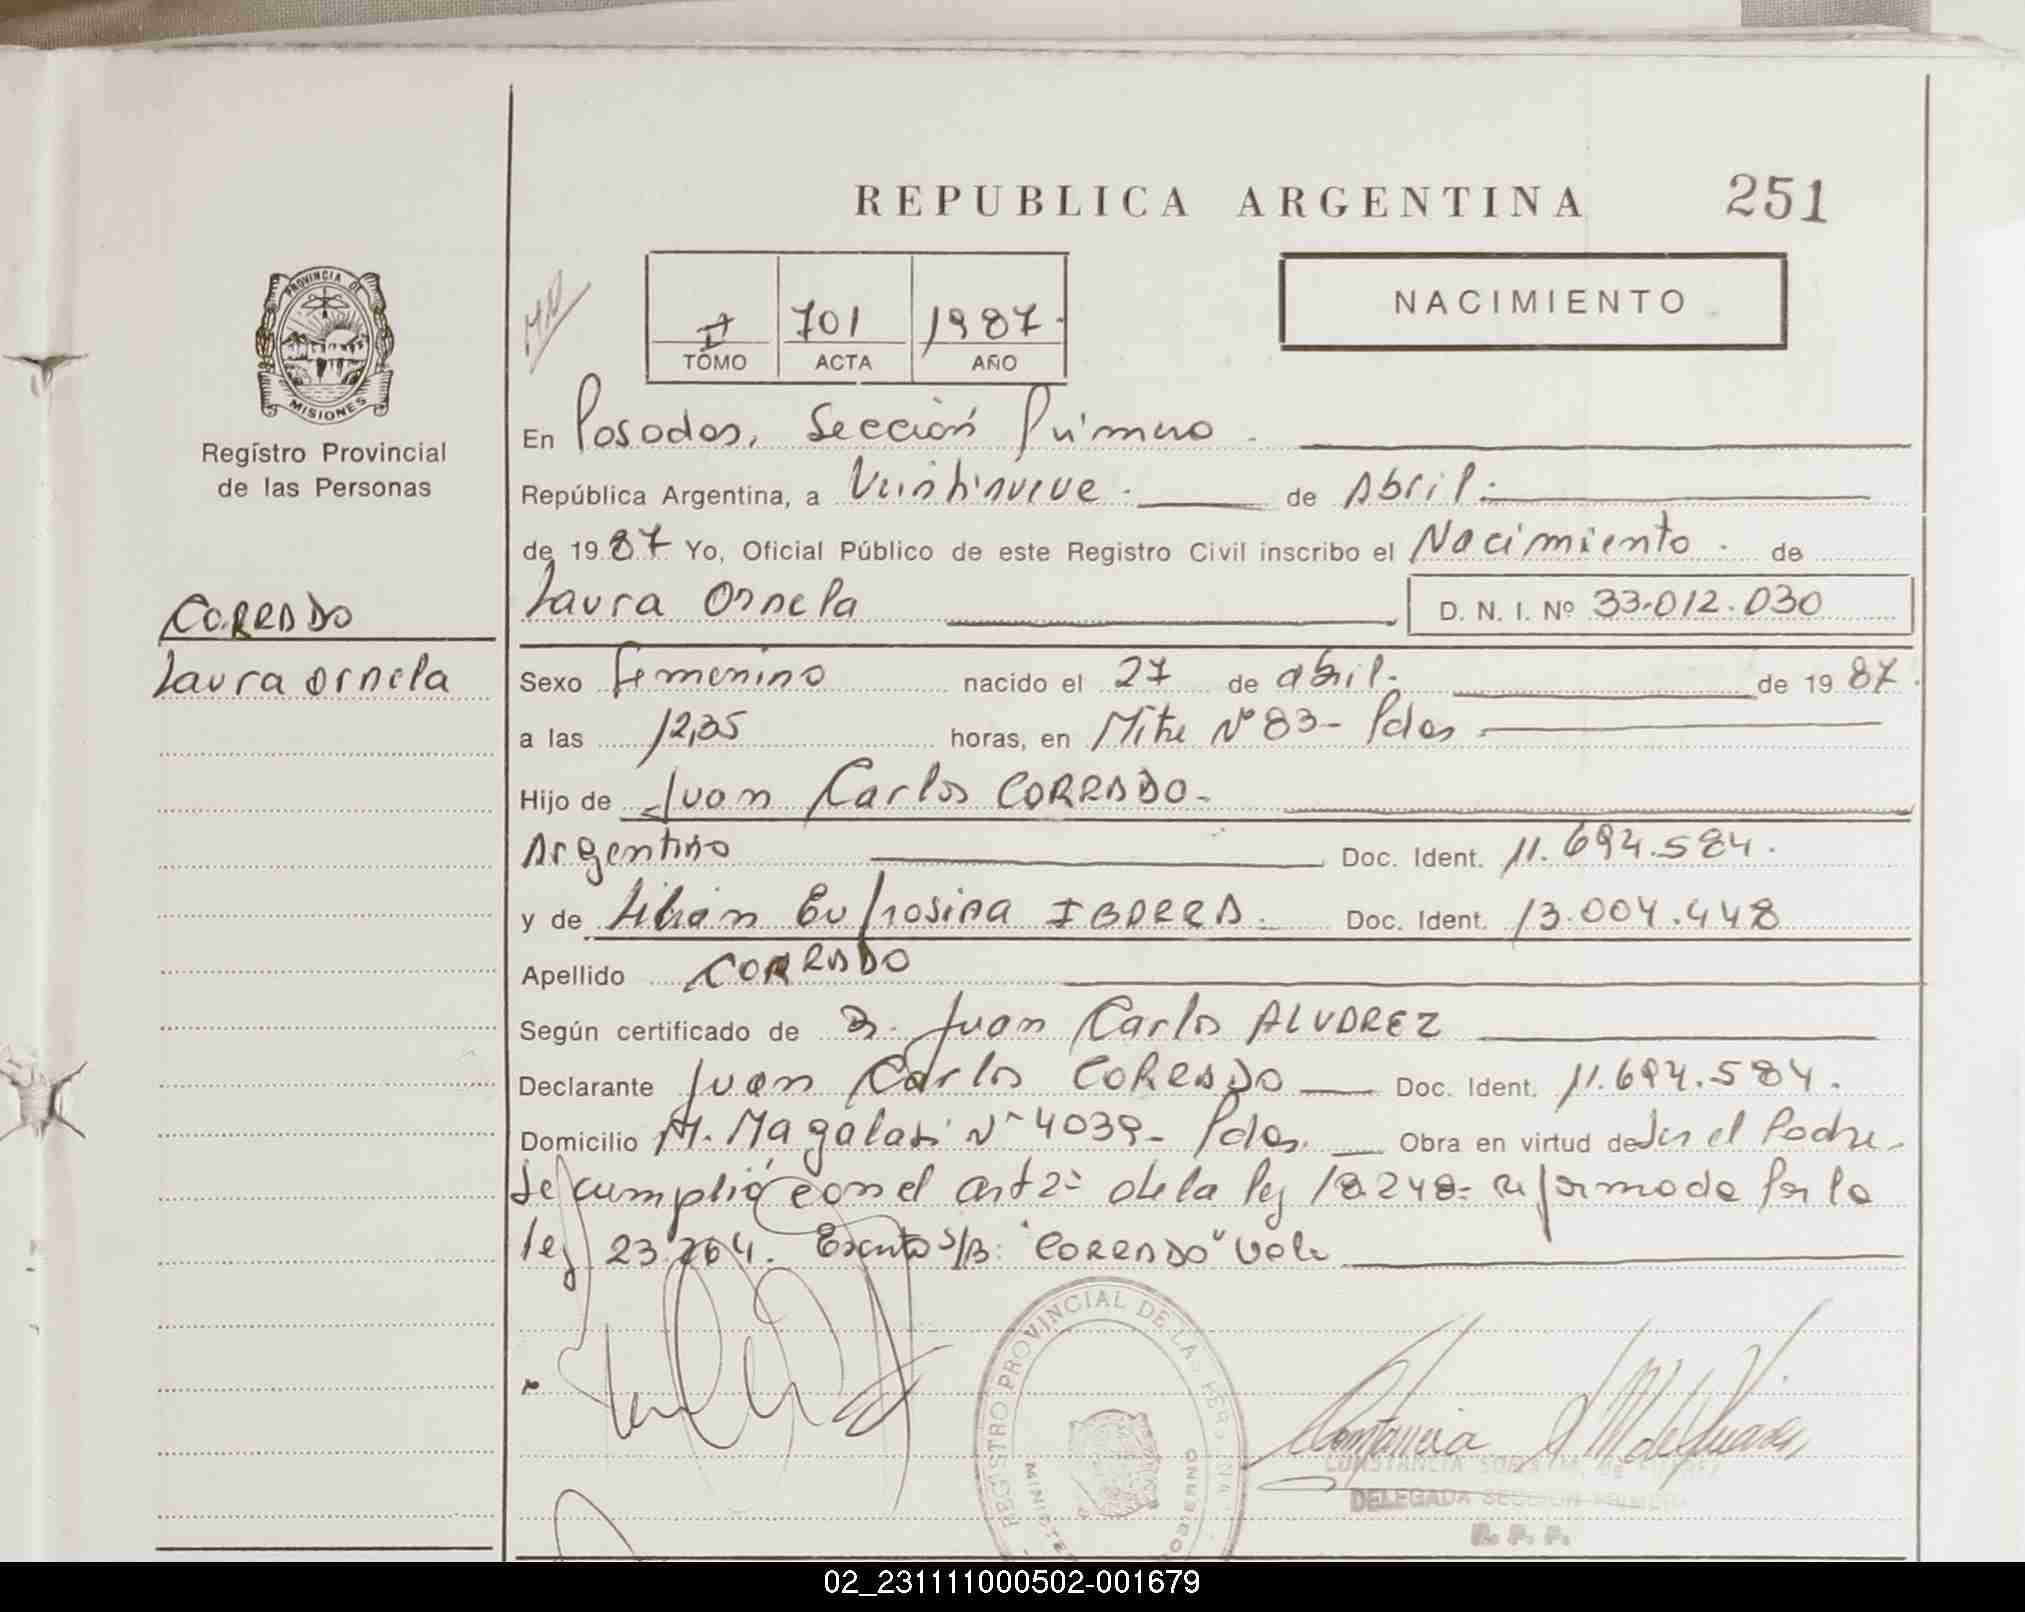 REPUBLICA ARGENTINA
251
PROVINCIA DE
MISIONES
Registro Provincial
de las Personas
II 701 1987.
TOMO ACTA AÑO
NACIMIENTO
En Posadas, Sección Primera.
República Argentina, a Veintinueve. de Abril.
de 1987 Yo, Oficial Público de este Registro Civil inscribo el Nacimiento. de
Laura Ornela
D. N. I. Nº 33.012.030
CORRADO
Laura Ornela
Sexo Femenino nacido el 27 de abril. de 1987.
a las 12,35 horas, en Mitre Nº 83- Pdas
Hijo de Juan Carlos CORRADO.
Argentino Doc. Ident. 11.694.584.
y de Lilian Eufrosina IBARRA. Doc. Ident. 13.004.448
Apellido CORRADO
Según certificado de Dr. Juan Carlos ALVAREZ
Declarante Juan Carlos CORRADO Doc. Ident. 11.694.584.
Domicilio A. Magaldi Nº 4039- Pdas. Obra en virtud de Ser el Padre.
Se cumplió con el art 2º de la ley 18.248- reformada por la
ley 23.264. Escrito s/B: "CORRADO" Vale
REGISTRO PROVINCIAL DE LAS PERSONAS
DELEGADA SECCION PRIMERA
R. P. P.
02_231111000502-001679